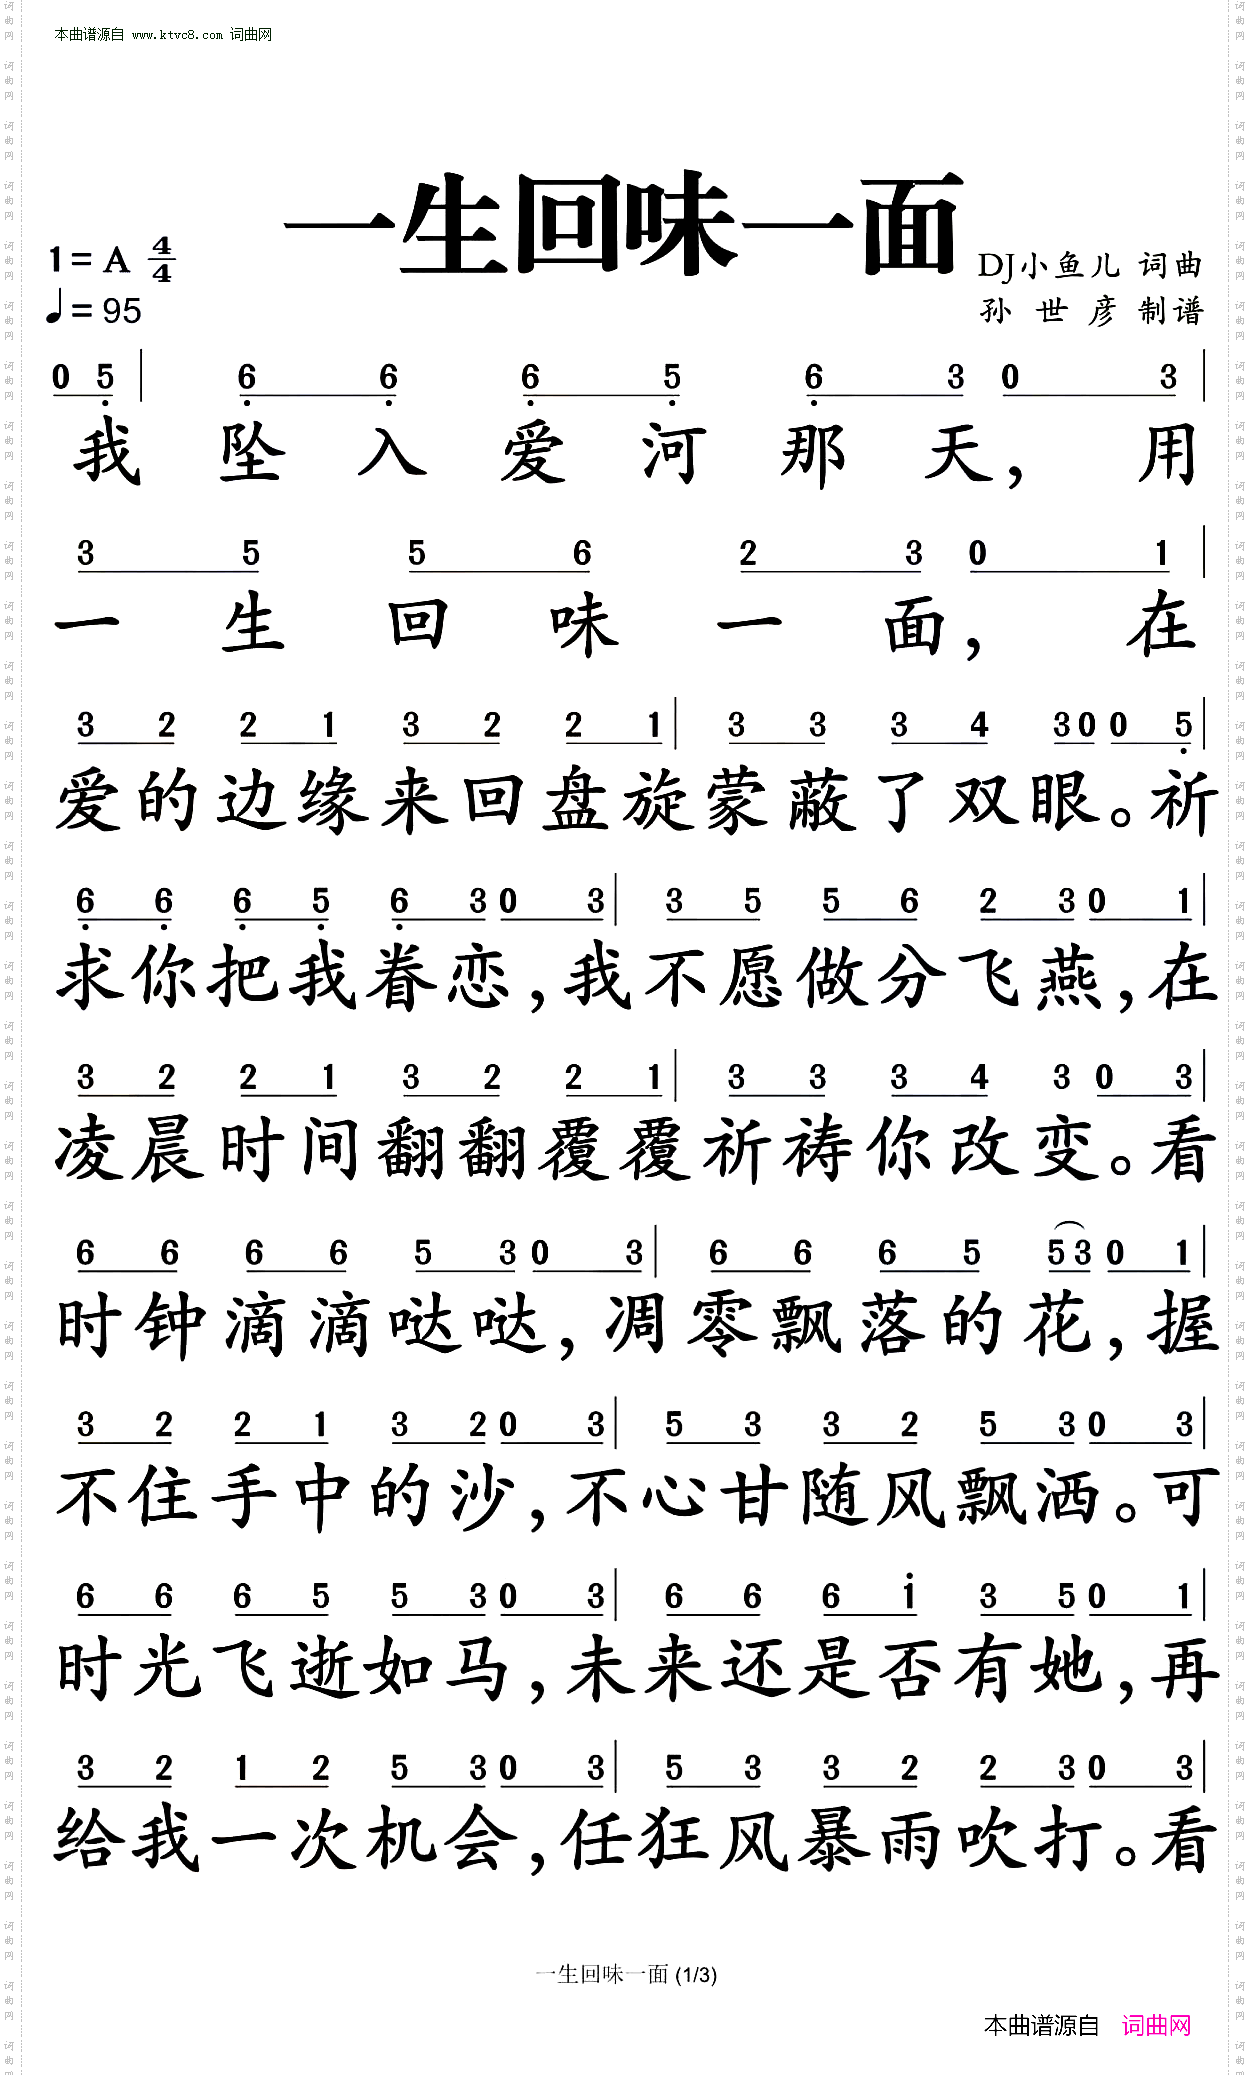 本曲谱源自 www.ktvc8.com 词曲网
一生回味一面
1= A 4/4
♩= 95
DJ小鱼儿 词曲
孙世彦 制谱
0 5̣ | 6̣ 6̣ 6̣ 5̣ 6̣ 3 0 3 |
我坠入爱河那天,用
3 5 5 6 2 3 0 1 |
一生回味一面,在
3 2 2 1 3 2 2 1 | 3 3 3 4 3 0 0 5̣ |
爱的边缘来回盘旋蒙蔽了双眼。祈
6̣ 6̣ 6̣ 5̣ 6̣ 3 0 3 | 3 5 5 6 2 3 0 1 |
求你把我眷恋,我不愿做分飞燕,在
3 2 2 1 3 2 2 1 | 3 3 3 4 3 0 3 |
凌晨时间翻翻覆覆祈祷你改变。看
6 6 6 6 5 3 0 3 | 6 6 6 5 5 3 0 1 |
时钟滴滴哒哒,凋零飘落的花,握
3 2 2 1 3 2 0 3 | 5 3 3 2 5 3 0 3 |
不住手中的沙,不心甘随风飘洒。可
6 6 6 5 5 3 0 3 | 6 6 6 1̇ 3 5 0 1 |
时光飞逝如马,未来还是否有她,再
3 2 1 2 5 3 0 3 | 5 3 3 2 2 3 0 3 |
给我一次机会,任狂风暴雨吹打。看
一生回味一面 (1/3)
本曲谱源自 词曲网